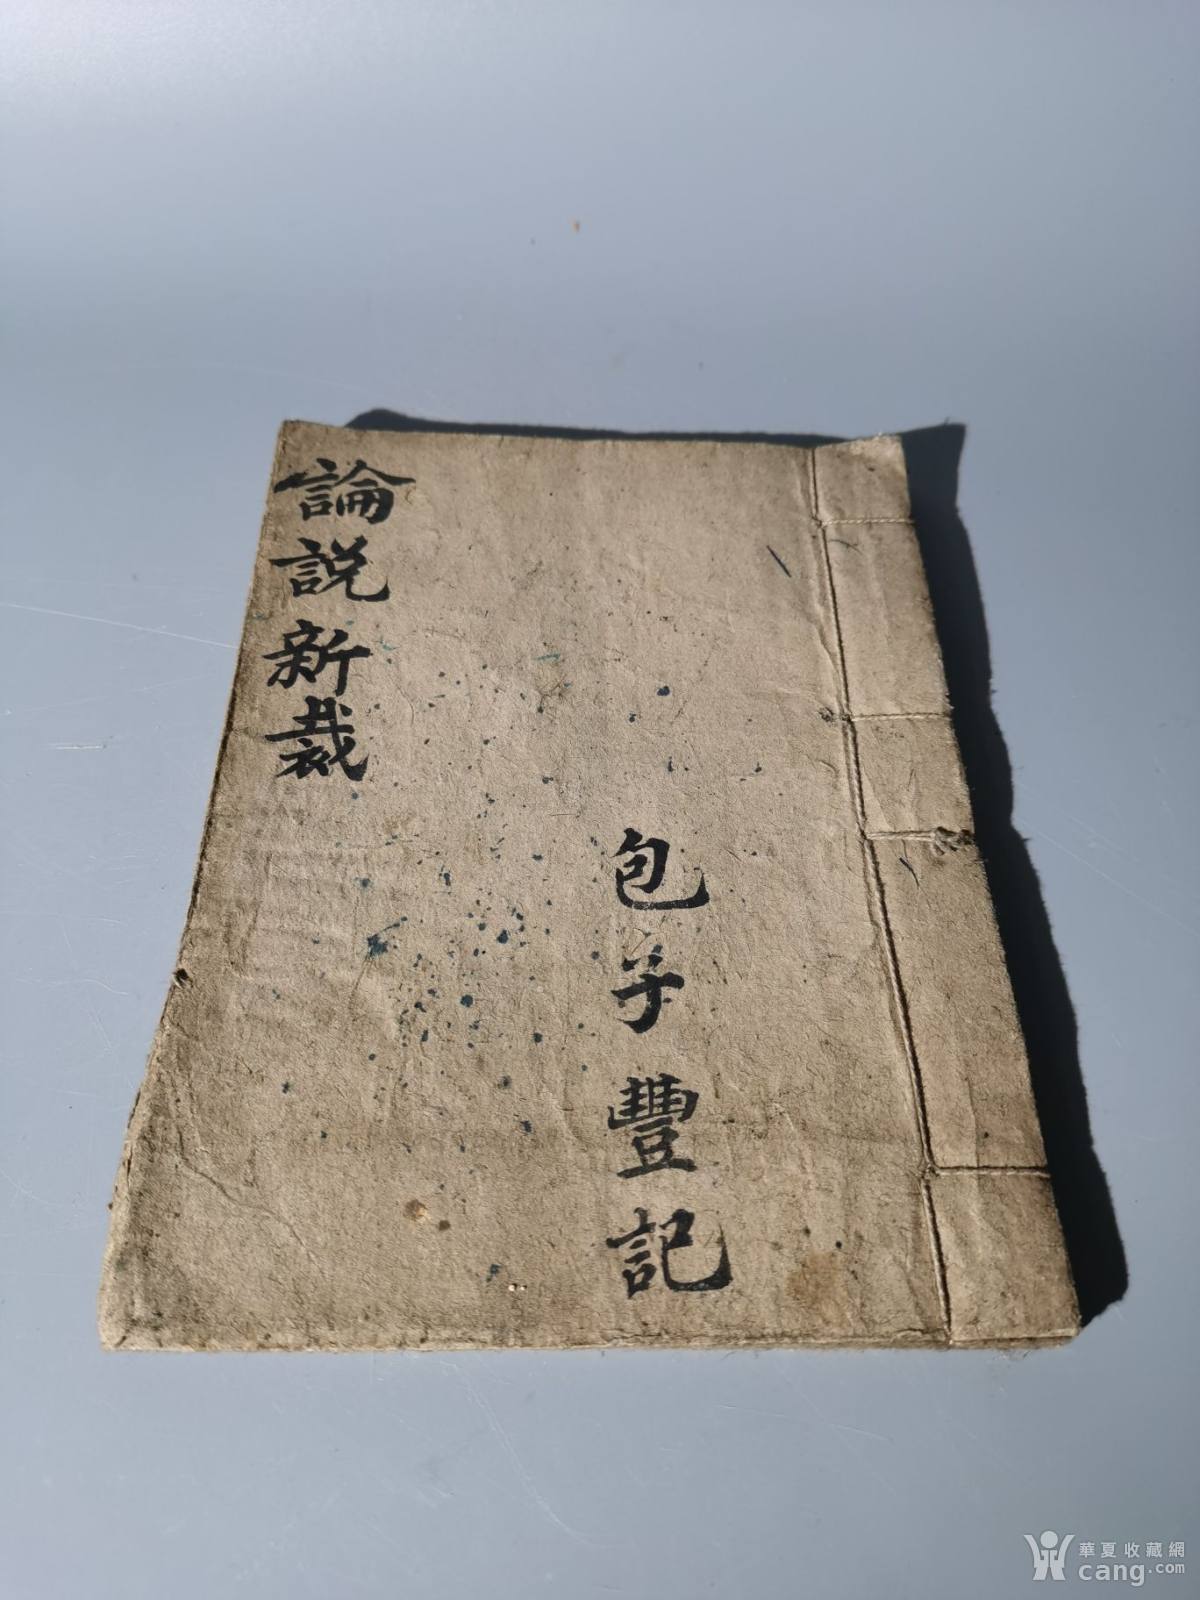 論説新裁
包子豐記
華夏收藏網
cang.com